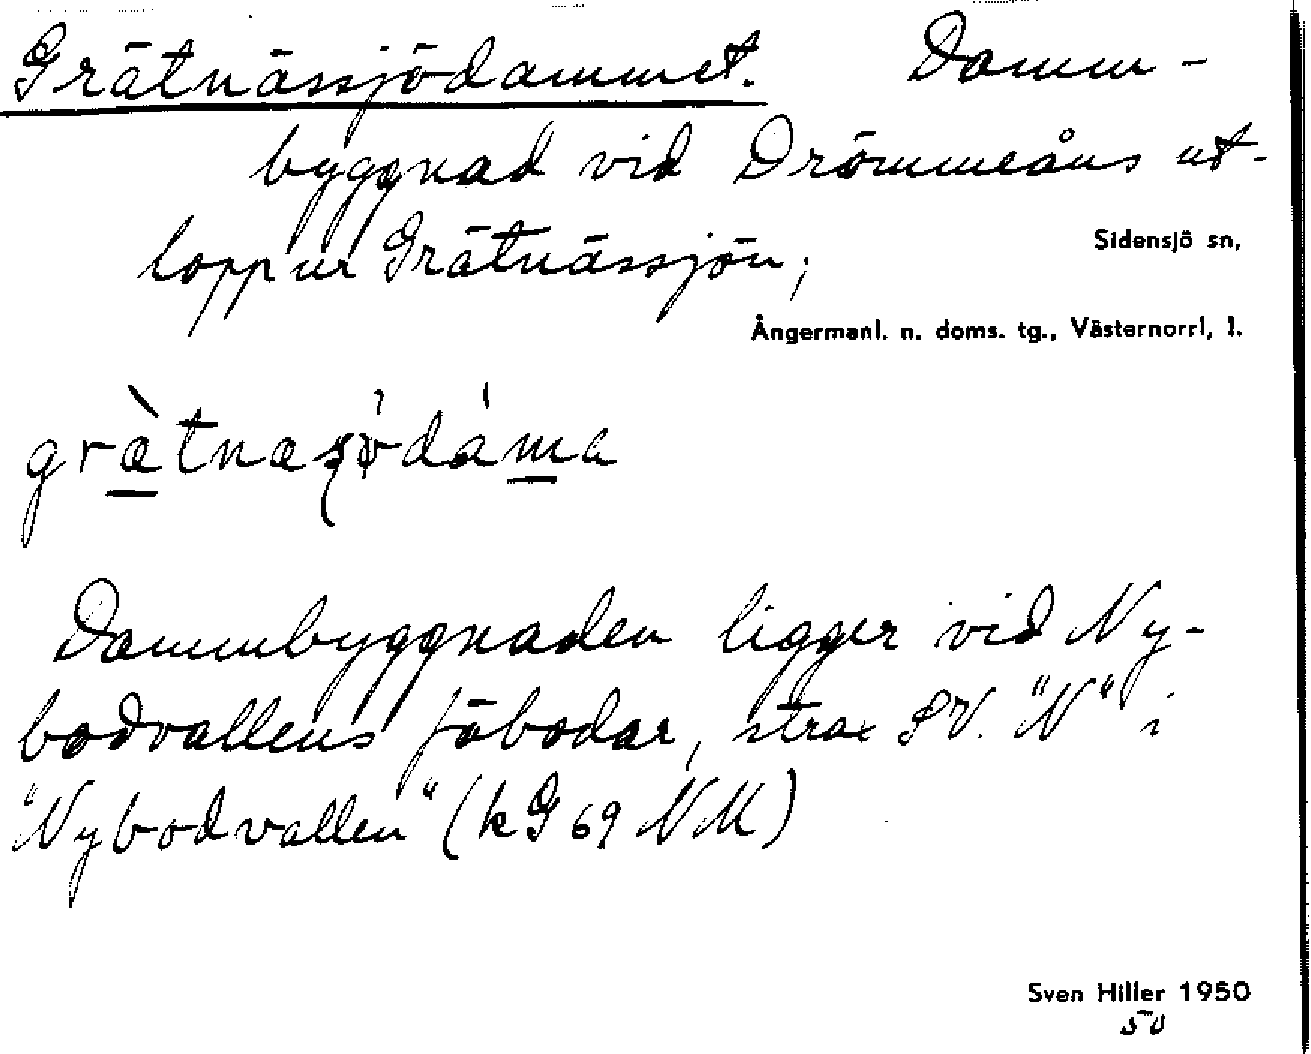 Grätnässjödammet. Damm-
byggnad vid Drömmeåns ut-
lopp ur Grätnässjön;
Sidensjö sn,
Ångermanl. n. doms. tg., Västernorrl, l.
Dammbyggnaden ligger vid Ny-
bodvallens fäbodar, strax SV. "N" i
"Nybodvallen" (kG 69 NM)
Sven Hiller 1950
50